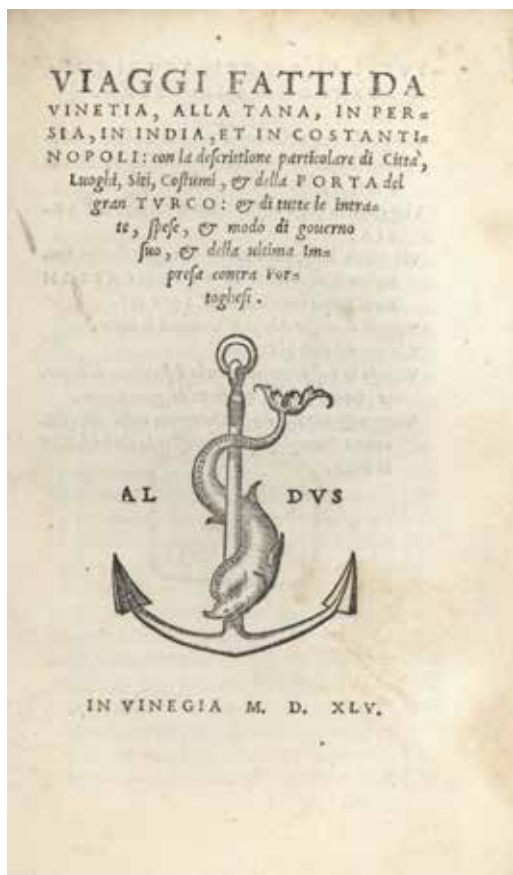 VIAGGI FATTI DA
VINETIA, ALLA TANA, IN PER=
SIA, IN INDIA, ET IN COSTANTI=
NOPOLI: con la descrittione particolare di Città,
Luoghi, Siti, Costumi, & della PORTA del
gran TVRCO: & di tutte le intra=
te, spese, & modo di gouerno
suo, & della ultima Im=
presa contra Por=
toghesi.
AL DVS
IN VINEGIA M. D. XLV.